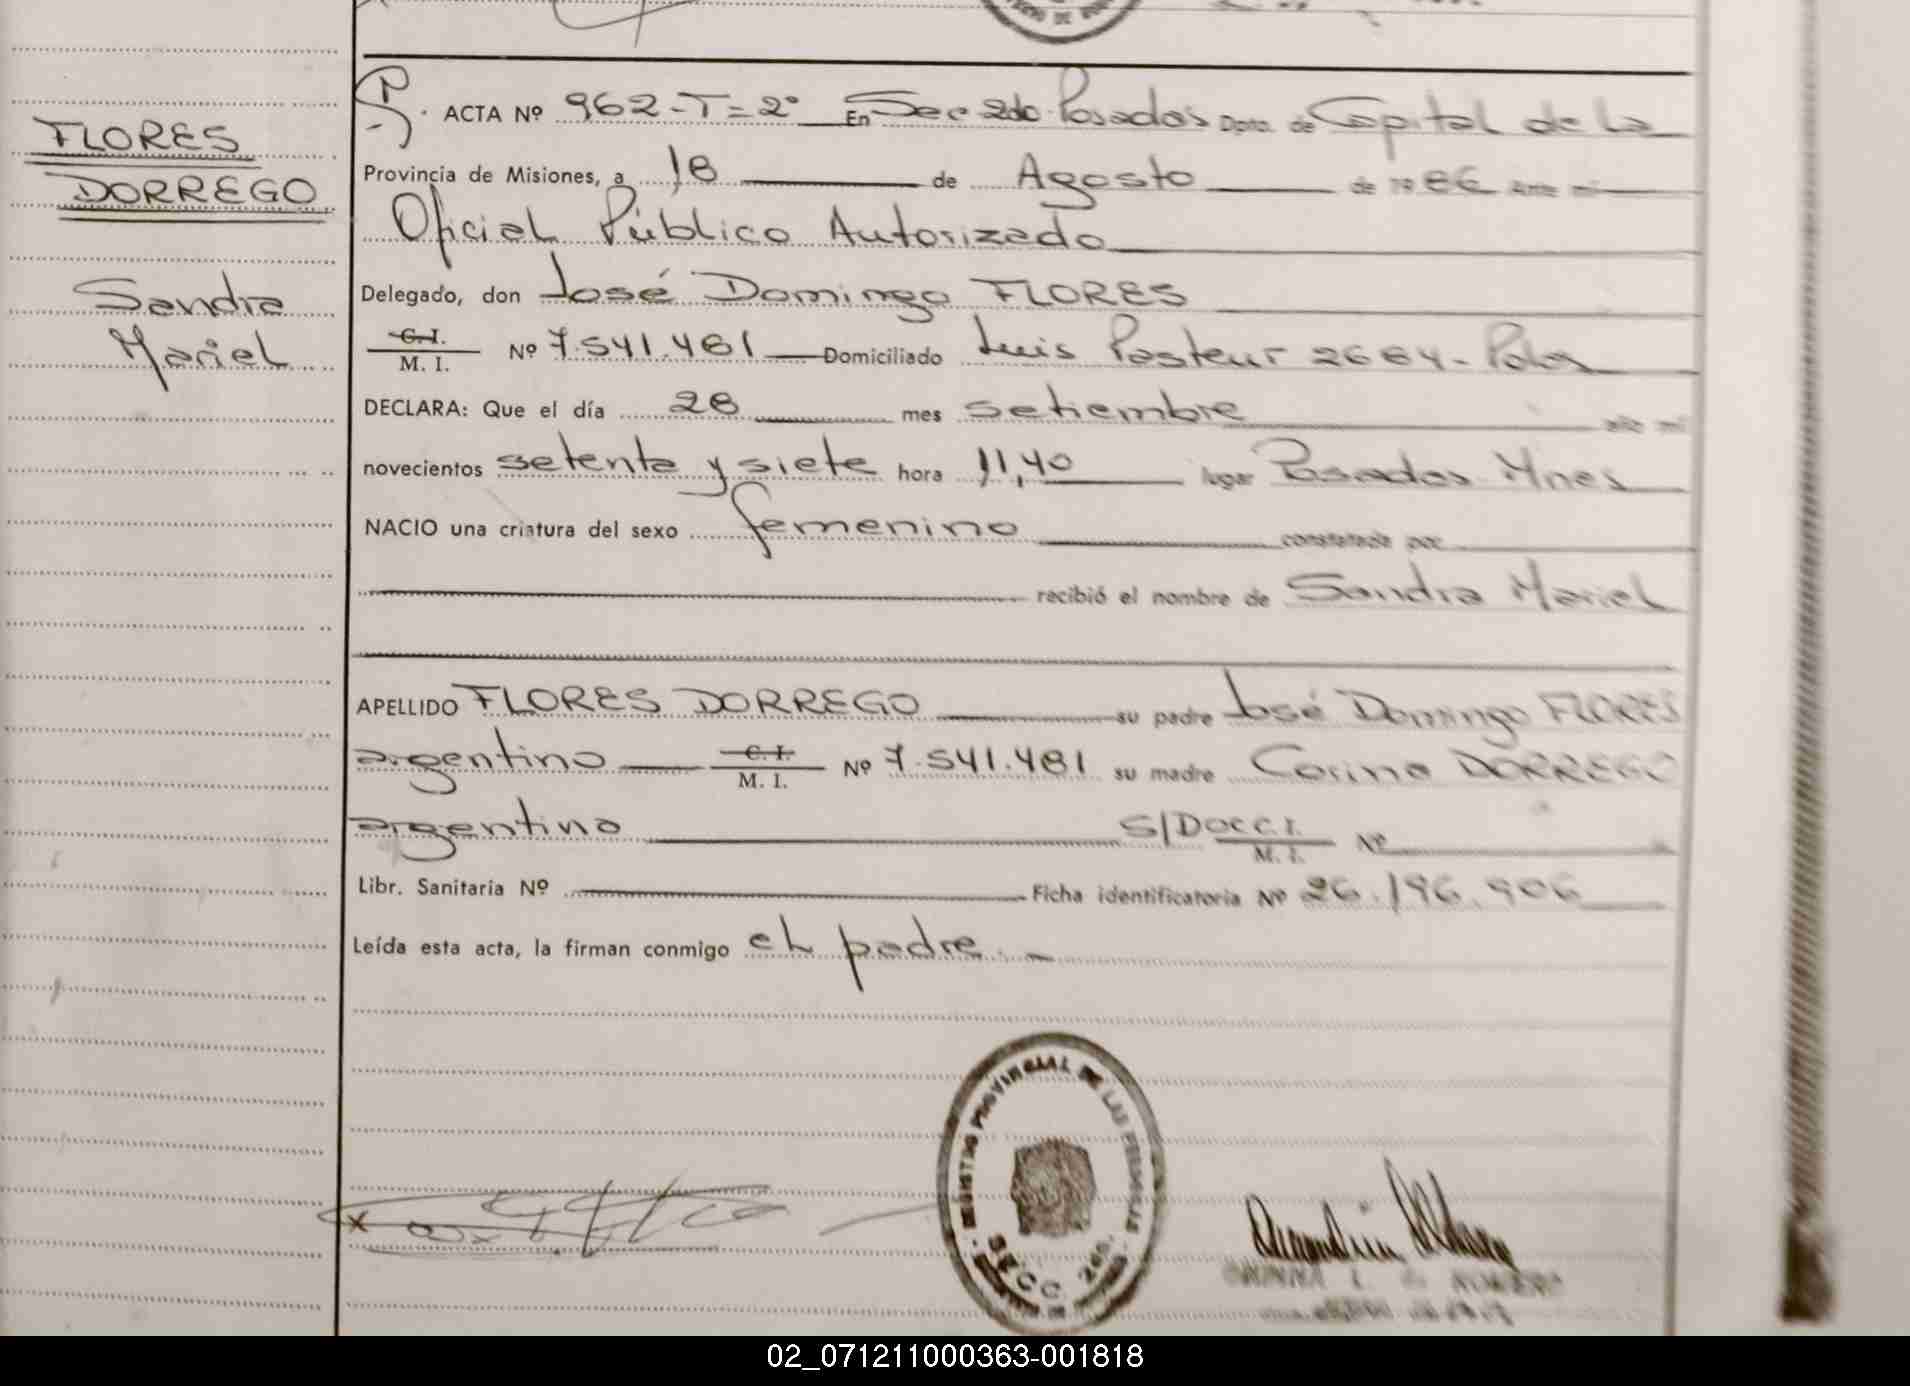 FLORES
DORREGO
Sandra
Mariel
ACTA Nº 962-T=2º En Sec 2do. Posadas Dpto. de Capital de la
Provincia de Misiones, a 18 de Agosto de 1986 Ante mi
Oficial Público Autorizado
Delegado, don José Domingo FLORES
C. I.
M. I. Nº 7.541.481 Domiciliado Luis Pasteur 2684 - Pdas
DECLARA: Que el día 28 mes setiembre año mil
novecientos setenta y siete hora 11,40 lugar Posadas Mnes
NACIO una criatura del sexo femenino constatada por
recibió el nombre de Sandra Mariel
APELLIDO FLORES DORREGO su padre José Domingo FLORES
argentino C. I.
M. I. Nº 7.541.481 su madre Corina DORREGO
argentina S/DOC C. I.
M. I. Nº
Libr. Sanitaria Nº Ficha identificatoria Nº 26.196.906
Leída esta acta, la firman conmigo el padre. -
REGISTRO PROVINCIAL DE LAS PERSONAS
SECC. 2da.
x
02_071211000363-001818